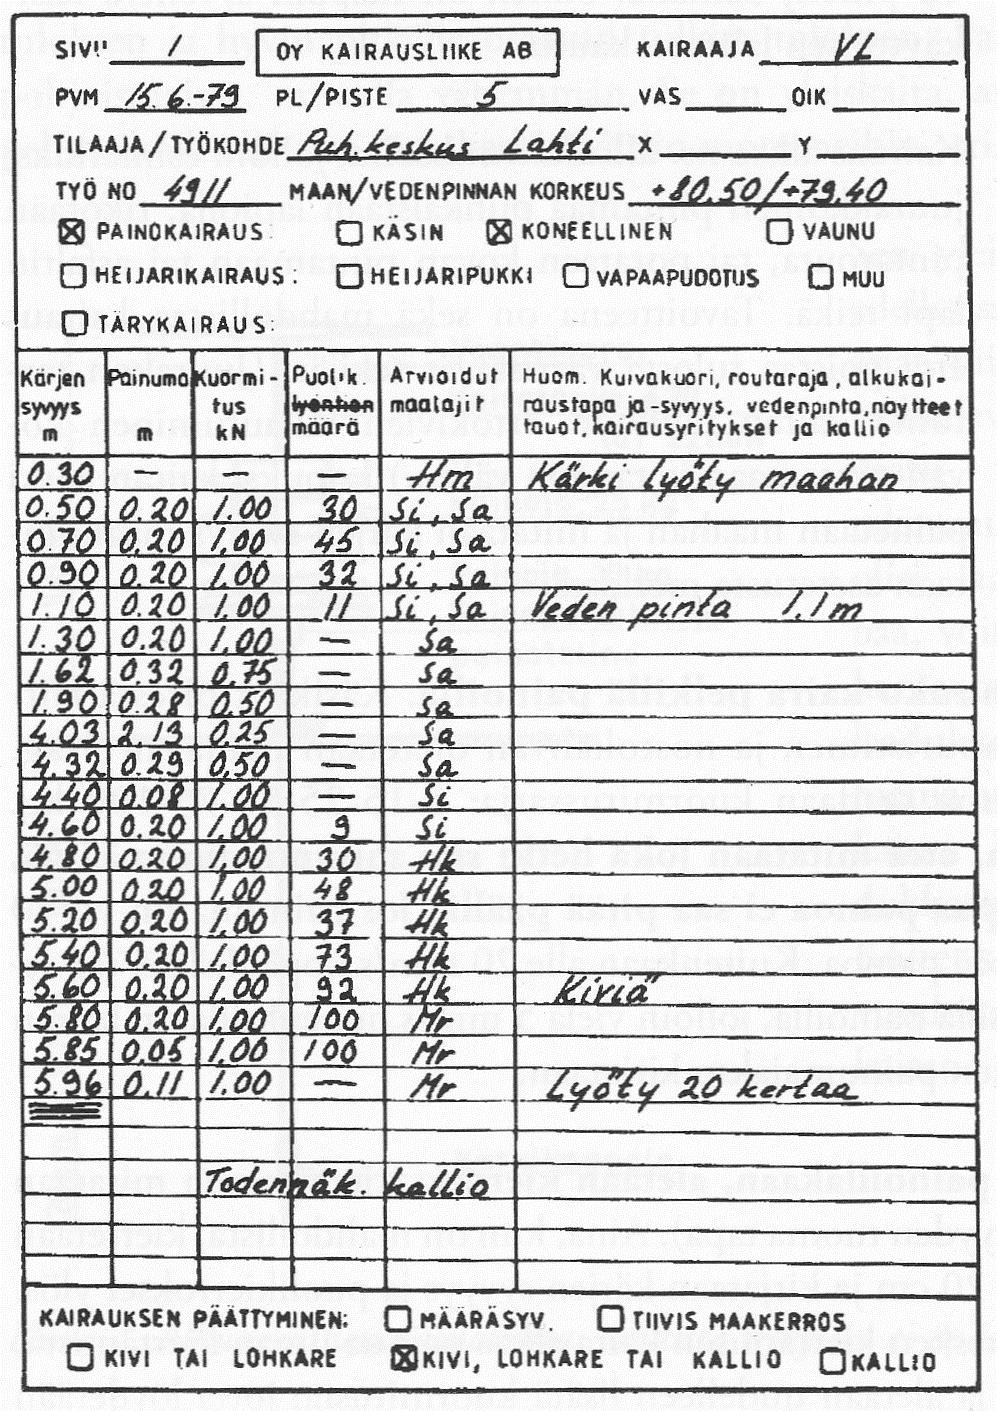 SIVU 1 OY KAIRAUSLIIKE AB KAIRAAJA VL
PVM 15.6.-79 PL/PISTE 5 VAS OIK
TILAAJA/TYÖKOHDE Puh.keskus Lahti X Y
TYÖ NO 4911 MAAN/VEDENPINNAN KORKEUS +80.50/+79.40
☒ PAINOKAIRAUS: ☐ KÄSIN ☒ KONEELLINEN ☐ VAUNU
☐ HEIJARIKAIRAUS: ☐ HEIJARIPUKKI ☐ VAPAAPUDOTUS ☐ MUU
☐ TÄRYKAIRAUS:
Kärjen Painuma Kuormi- Puolik. Arvioidut Huom. Kuivakuori, routaraja, alkukai-
syvyys tus lyöntien maalajit raustapa ja -syvyys, vedenpinta, näytteet
m m kN määrä tauot, kairausyritykset ja kallio
0.30 — — — Hm Kärki lyöty maahan
0.50 0.20 1.00 30 Si, Sa
0.70 0.20 1.00 45 Si, Sa
0.90 0.20 1.00 32 Si, Sa
1.10 0.20 1.00 11 Si, Sa Veden pinta 1.1m
1.30 0.20 1.00 — Sa
1.62 0.32 0.75 — Sa
1.90 0.28 0.50 — Sa
4.03 2.13 0.25 — Sa
4.32 0.29 0.50 — Sa
4.40 0.08 1.00 — Si
4.60 0.20 1.00 9 Si
4.80 0.20 1.00 30 Hk
5.00 0.20 1.00 48 Hk
5.20 0.20 1.00 37 Hk
5.40 0.20 1.00 73 Hk
5.60 0.20 1.00 92 Hk Kiviä
5.80 0.20 1.00 100 Mr
5.85 0.05 1.00 100 Mr
5.96 0.11 1.00 — Mr Lyöty 20 kertaa
Todennäk. kallio
KAIRAUKSEN PÄÄTTYMINEN: ☐ MÄÄRÄSYV. ☐ TIIVIS MAAKERROS
☐ KIVI TAI LOHKARE ☒ KIVI, LOHKARE TAI KALLIO ☐ KALLIO